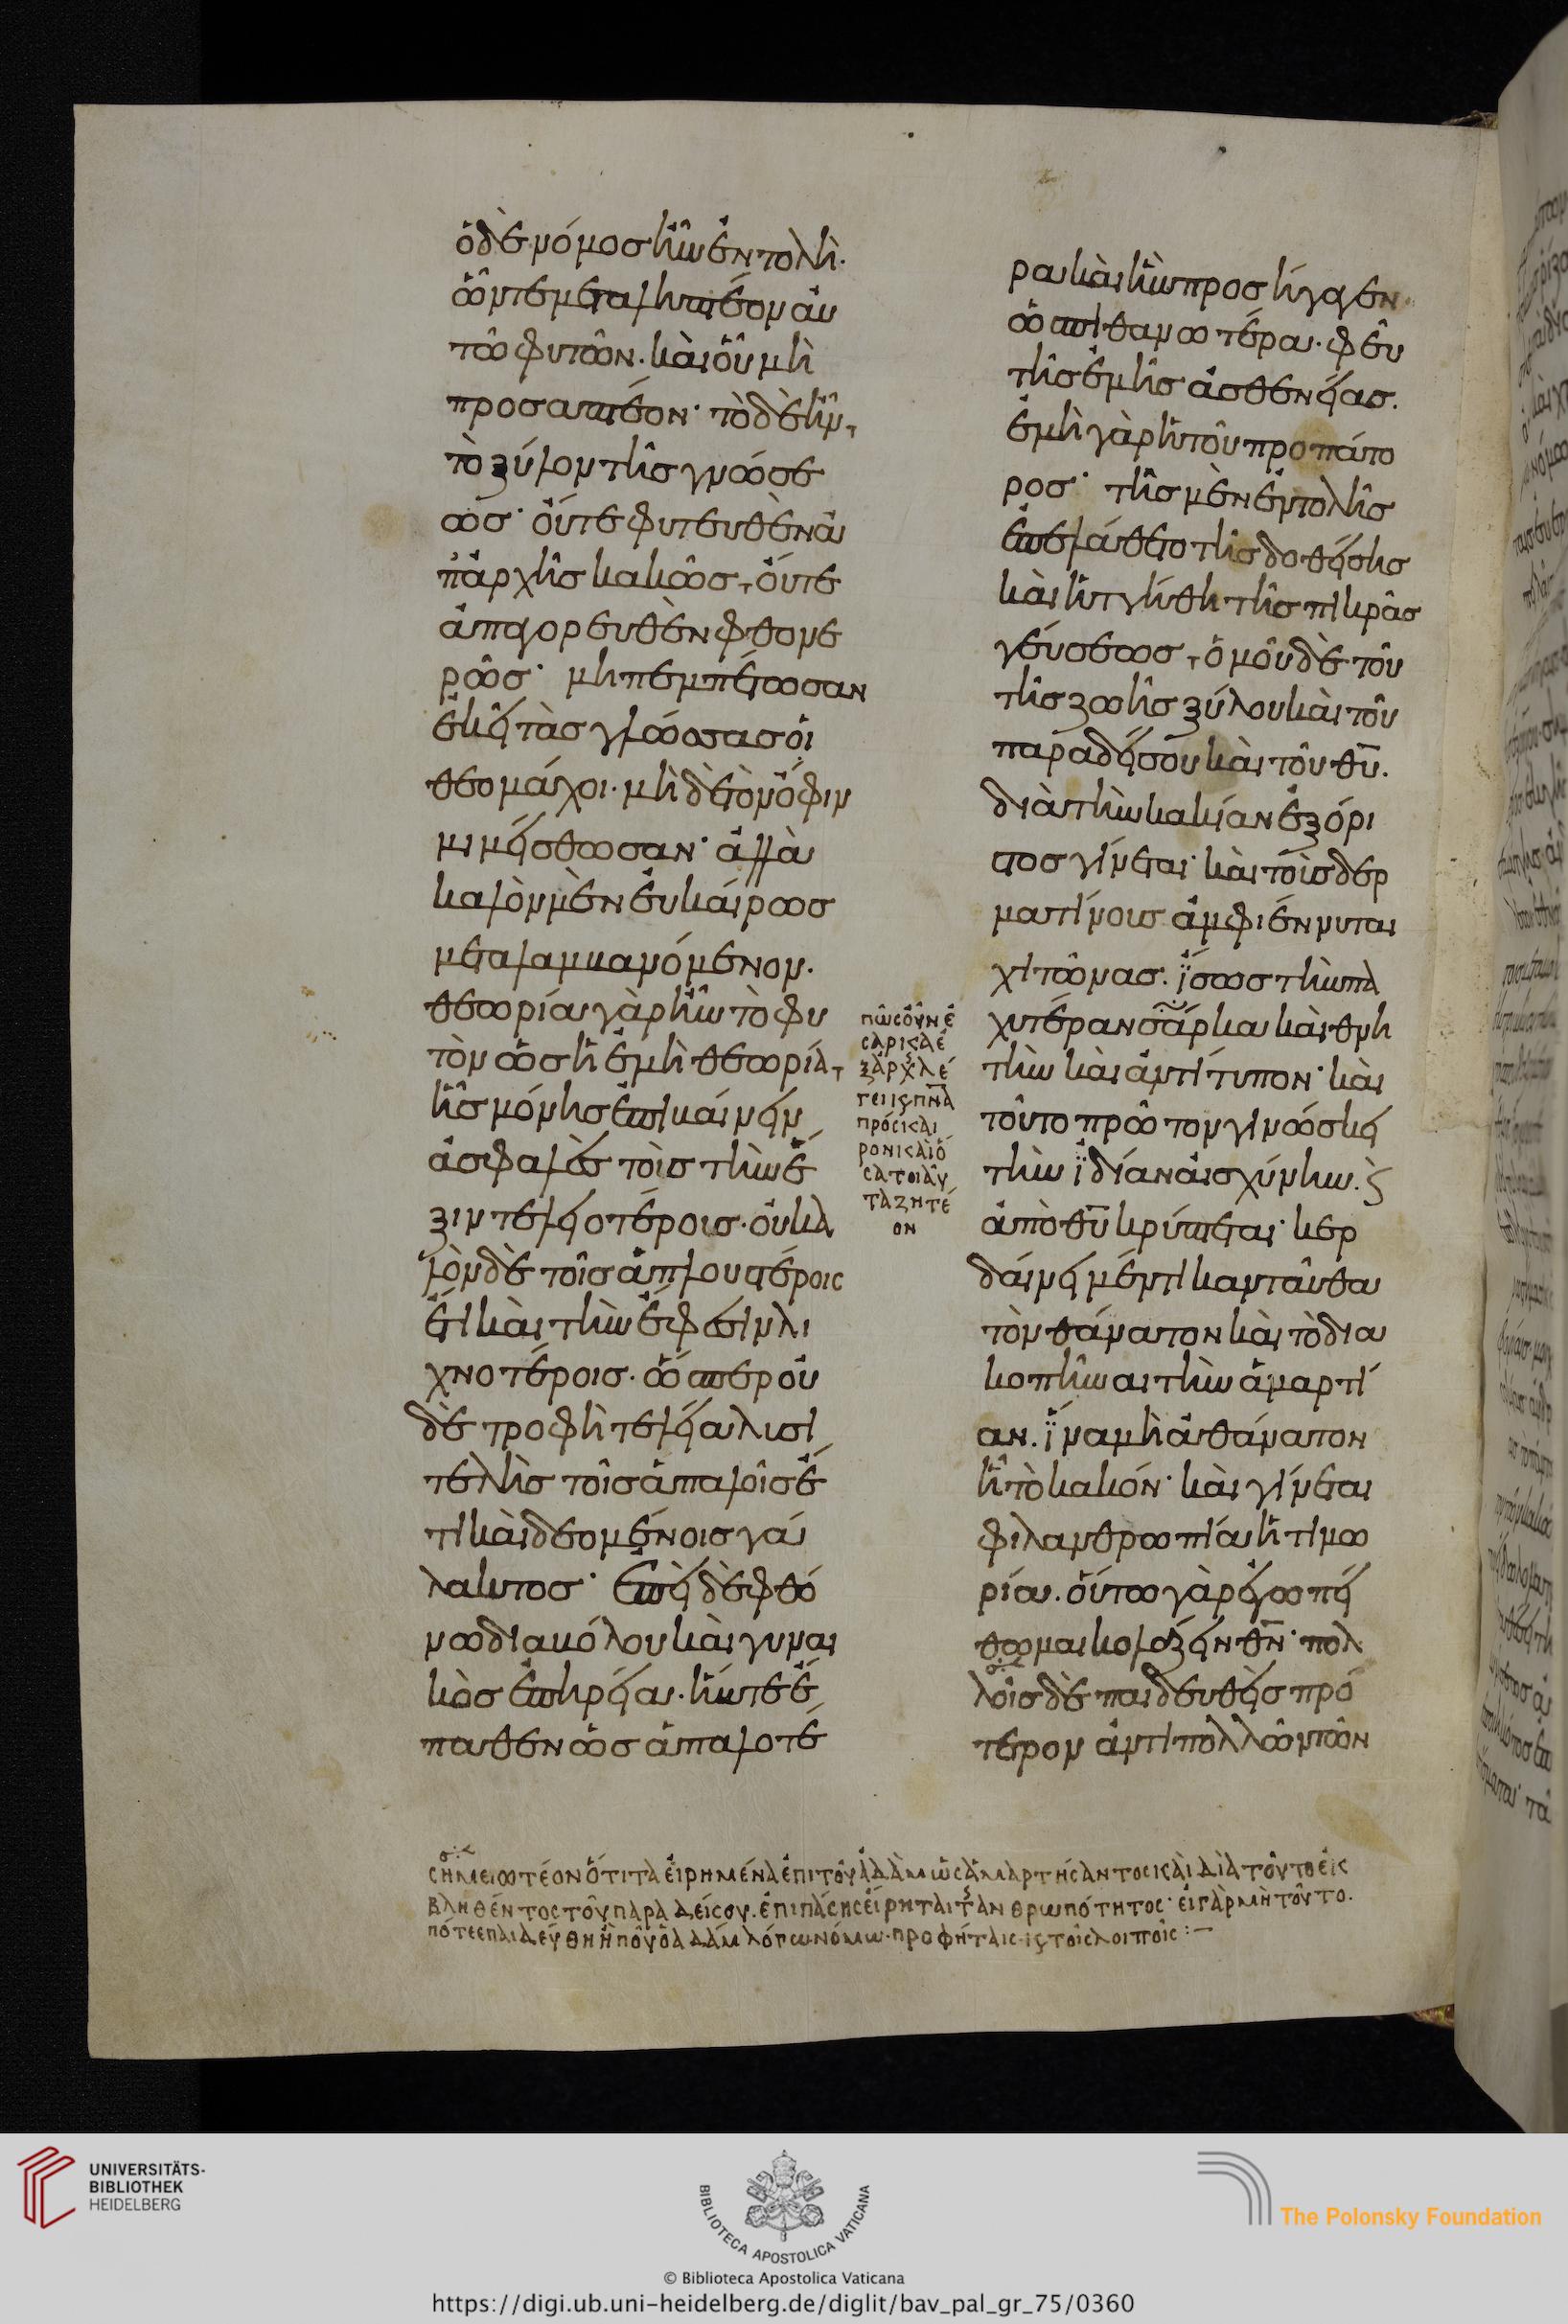 ὁ δὲ νόμος ἦν ἐντολὴ·
ὧν τε μεταληπτέον αὐ
τῶ φυτῶν· καὶ οὗ μὴ
προσαπτέον· τὸ δὲ ἦν,
τὸ ξύλον τῆς γνώσε
ως· οὔτε φυτευθὲν ἀ
π' ἀρχῆς κακῶς, οὔτε
ἀπαγορευθὲν φθονε
ρῶς· μὴ πεμπέτωσαν
ἐκεῖ τὰς γλώσσας οἱ
θεομάχοι· μὴ δὲ τὸν ὄφιν
μιμείσθωσαν· ἀλλὰ
καλὸν μὲν εὐκαίρως
μεταλαμβανόμενον·
θεωρία γὰρ ἦν τὸ φυ
τὸν ὡς ἡ ἐμὴ θεωρία,
ἧς μόνης ἐπιβαίνειν
ἀσφαλὲς τοῖς τὴν ἕ
ξιν τελειοτέροις· οὐ κα
λὸν δὲ τοῖς ἁπλουστέροις
ἔτι καὶ τὴν ἔφεσιν λι
χνοτέροις· ὥσπερ οὐ
δὲ τροφὴ τελεία λυσι
τελὴς τοῖς ἁπαλοῖς ἔ
τι καὶ δεομένοις γά
λακτος· ἐπεὶ δὲ φθό
νω διαβόλου καὶ γυναι
κὸς ἐπηρεία· ἥν τε ἔ
παθεν ὡς ἁπαλοτέ
ρα καὶ ἣν προσήγαγεν
ὡς πιθανωτέρα· φεῦ
τῆς ἐμῆς ἀσθενείας·
ἐμὴ γὰρ ἡ τοῦ προπάτο
ρος· τῆς μὲν ἐντολῆς
ἐπελάθετο τῆς δοθείσης
καὶ ἡττήθη τῆς πικρᾶς
γεύσεως, ὁμοῦ δὲ τοῦ
τῆς ζωῆς ξύλου καὶ τοῦ
παραδείσου καὶ τοῦ θυ·
διὰ τὴν κακίαν ἐξόρι
στος γίνεται· καὶ τοὺς δερ
ματίνους ἀμφιέννυται
χιτῶνας· ἴσως τὴν πα
χυτέραν σάρκα καὶ θνη
τὴν καὶ ἀντίτυπον· καὶ
τοῦτο πρῶτον γινώσκει
τὴν ἰδίαν αἰσχύνην· ϗ
ἀπὸ θυ κρύπτεται· κερ
δαίνει μέντι κανταῦθα
τὸν θάνατον καὶ τὸ δια
κοπῆναι τὴν ἁμαρτί
αν· ἵνα μὴ ἀθάνατον
ἦ τὸ κακόν· καὶ γίνεται
φιλανθρωπία ἡ τιμω
ρία· οὕτω γὰρ ἐγὼ πεί
θομαι κολάζειν θν· πολ
λοῖς δὲ παιδευθεὶς πρό
τερον ἀντὶ πολλῶν τῶν
πῶς οὖν ἐ
σαρκ
ξάρχ λέ
γει
πρόσκαι
ρον καὶ ὅ
σα τοιαῦ
τα ζητέ
ον
σημειωτέον ὅτι τὰ εἰρημένα ἐπὶ τοῦ ἀδὰμ ὡς ἁμαρτήσαντος καὶ διὰ τοῦτο ἐκ
βληθέντος τοῦ παραδείσου· ἐπὶ πάσης εἴρηται τ ἀνθρωπότητος· εἰ γὰρ μὴ τοῦτο·
πότε ἐπαιδεύθη ἢ ποῦ ὁ ἀδὰμ λόγω νόμω· προφήταις· ϗ τοῖς λοιποῖς :—
UNIVERSITÄTS-
BIBLIOTHEK
HEIDELBERG
BIBLIOTECA APOSTOLICA VATICANA
© Biblioteca Apostolica Vaticana
The Polonsky Foundation
https://digi.ub.uni-heidelberg.de/diglit/bav_pal_gr_75/0360